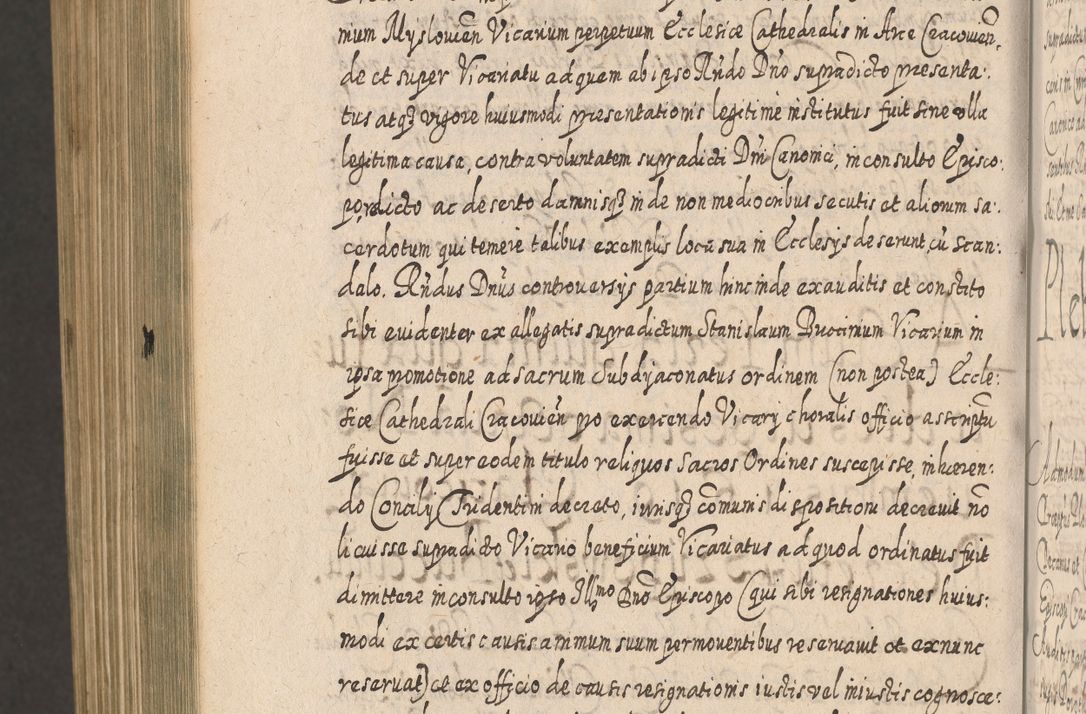 nium Myslouien̄ Vicarium perpetuum Ecclesiæ Cathedralis in Arce Cracouien̄,
de et super Vicariatu ad quem ab ipso Rn̄do Dn̄o supradicto præsenta:
tus atqȝ vigore huiusmodi præsentationis legitime institutus fuit sine vlla
legitima causa, contra voluntatem supradicti Dn̄i Canonici, inconsulto Episco:
po, relicto ac deserto damnisqȝ inde non mediocribus secutis et aliorum sa:
cerdotum qui temere talibus exemplis loca sua in Ecclesijs deserunt, cū scan:
dalo. Rn̄dus Dn̄us controuersijs partium hinc inde exauditis et constito
sibi euidenter ex allegatis supradictum Stanislaum Vicarium in
ipsa promotione ad Sacrum Subdyaconatus ordinem (non postea) Eccle:
siæ Cathedrali Cracouien̄ pro exercendo Vicarij choralis officio ascriptū
fuisse et super eodem titulo reliquos Sacros Ordines suscepisse, inhæren:
do Concilij Tridentini decreto, iurisqȝ cōmunis dispositioni decreuit nō
licuisse supradicto Vicario beneficium Vicariatus ad quod ordinatus fuit
dimittere inconsulto ipso Illmo Dn̄o Episcopo (qui sibi resignationes huius:
modi ex certis causis animum suum permouentibus reseruauit et ex nunc
reseruat) et ex officio de causis resignationis iustis vel iniustis cognosce: